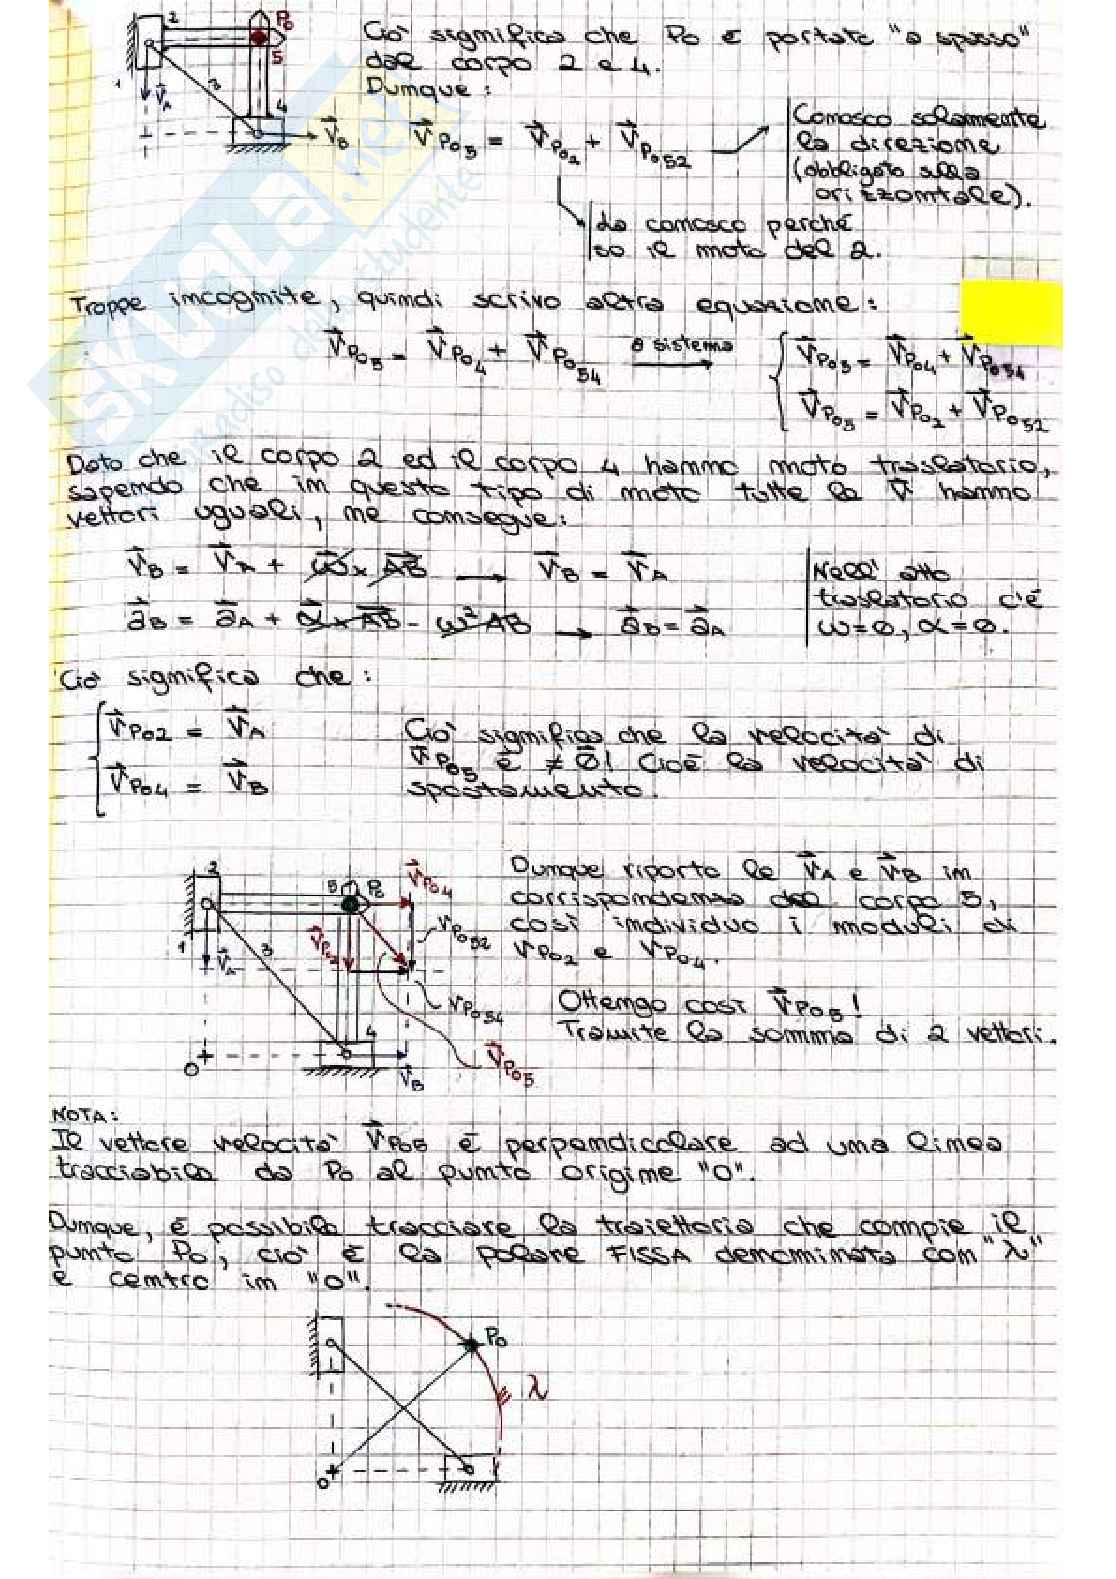 2 P₀
5
1 V⃗A 3 4
V⃗B
Ciò significa che P₀ è portato "a spasso"
dal corpo 2 e 4.
Dunque:
V⃗P₀5 = V⃗P₀2 + V⃗P₀52
Conosco solamente
la direzione
(obbligato alla
orizzontale).
La conosco perché
so il moto del 2.
Troppe incognite, quindi scrivo altra equazione:
V⃗P₀5 = V⃗P₀4 + V⃗P₀54 a sistema { V⃗P₀5 = V⃗P₀4 + V⃗P₀54
V⃗P₀5 = V⃗P₀2 + V⃗P₀52
Dato che il corpo 2 ed il corpo 4 hanno moto traslatorio,
sapendo che in questo tipo di moto tutte le V⃗ hanno
vettori uguali, ne consegue:
V⃗B = V⃗A + ω⃗ x AB → V⃗B = V⃗A
a⃗B = a⃗A + α⃗ x AB - ω² AB → a⃗B = a⃗A
Nell' atto
traslatorio c'è
ω=0, α=0.
Ciò significa che:
{ V⃗P₀2 = V⃗A
V⃗P₀4 = V⃗B
Ciò significa che la velocità di
V⃗P₀5 è ≠ 0! Cioè la velocità di
spostamento.
2 5 P₀ V⃗P₀4
VP₀52
1 V⃗A 3 V⃗P₀2
VP₀54
4
O V⃗B V⃗P₀5
Dunque riporto le V⃗A e V⃗B in
corrispondenza del corpo 5,
così individuo i moduli di
VP₀2 e VP₀4.
Ottengo così V⃗P₀5!
Tramite la somma di 2 vettori.
NOTA:
Il vettore velocità V⃗P₀5 è perpendicolare ad una linea
tracciabile da P₀ al punto origine "O".
Dunque, è possibile tracciare la traiettoria che compie il
punto P₀, ciò è la polare FISSA denominata con "λ"
e centro in "O".
P₀
λ
O
SKUOLA.net